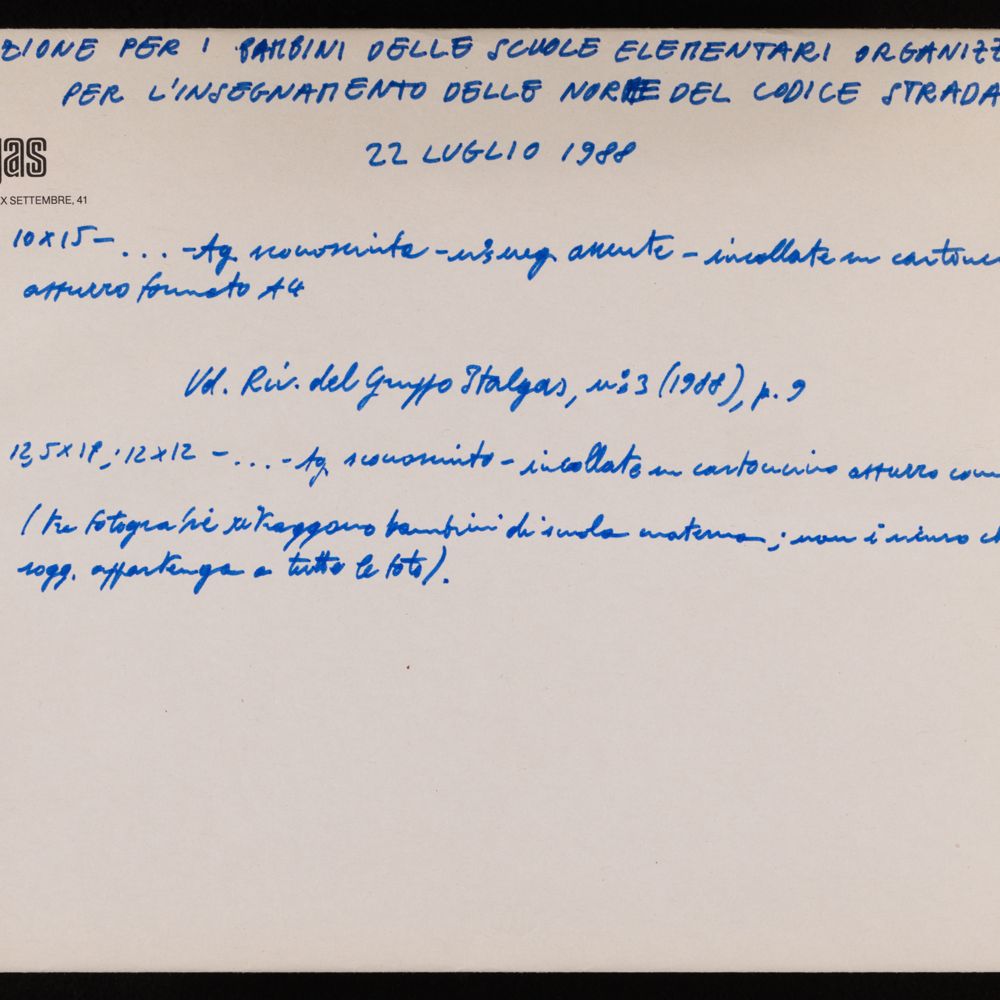 ZIONE PER I BAMBINI DELLE SCUOLE ELEMENTARI ORGANIZZ
PER L'INSEGNAMENTO DELLE NORME DEL CODICE STRADA
22 LUGLIO 1988
gas
X SETTEMBRE, 41
10x15 - ... - Ag. sconosciuta - n° neg. assente - incollate su cartonci
azzurro formato A4
Vd. Riv. del Gruppo Italgas, n° 3 (1988), p. 9
12,5x18; 12x12 - ... - Ag. sconosciuto - incollate su cartoncino azzurro com
(tre fotografie ritraggono bambini di scuola materna; non è sicuro ch
sogg. appartenga a tutte le foto).